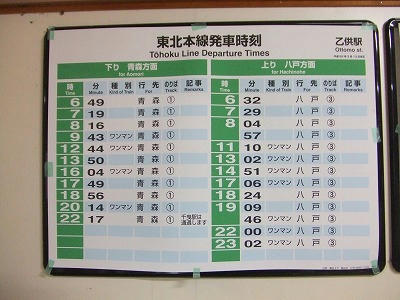 東北本線発車時刻
Tōhoku Line Departure Times
乙供駅
Ottomo st.
下り 青森方面
for Aomori
時 分 種別 行先 のりば 記事
Time Minute Kind of Train For Track Remarks
6 49 青森 ①
7 19 青森 ①
8 16 青森 ①
9 43 ワンマン 青森 ①
12 44 ワンマン 青森 ①
13 50 青森 ①
16 04 ワンマン 青森 ①
17 49 青森 ①
18 56 青森 ①
20 14 ワンマン 青森 ①
22 17 青森 ① 千曳駅は
通過します
上り 八戸方面
for Hachinohe
時 分 種別 行先 のりば 記事
Time Minute Kind of Train For Track Remarks
6 32 八戸 ③
7 29 八戸 ③
8 04 八戸 ③
57 八戸 ③
11 10 ワンマン 八戸 ③
13 02 ワンマン 八戸 ③
16 51 ワンマン 八戸 ③
17 06 ワンマン 八戸 ③
18 24 八戸 ③
19 09 八戸 ③
46 ワンマン 八戸 ③
22 00 ワンマン 八戸 ③
23 02 ワンマン 八戸 ③